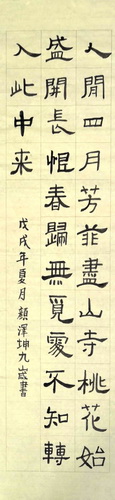 人間四月芳菲盡山寺桃花始
盛開長恨春歸無覓處不知轉
入此中来
戊戌年夏月顏澤坤九歲書